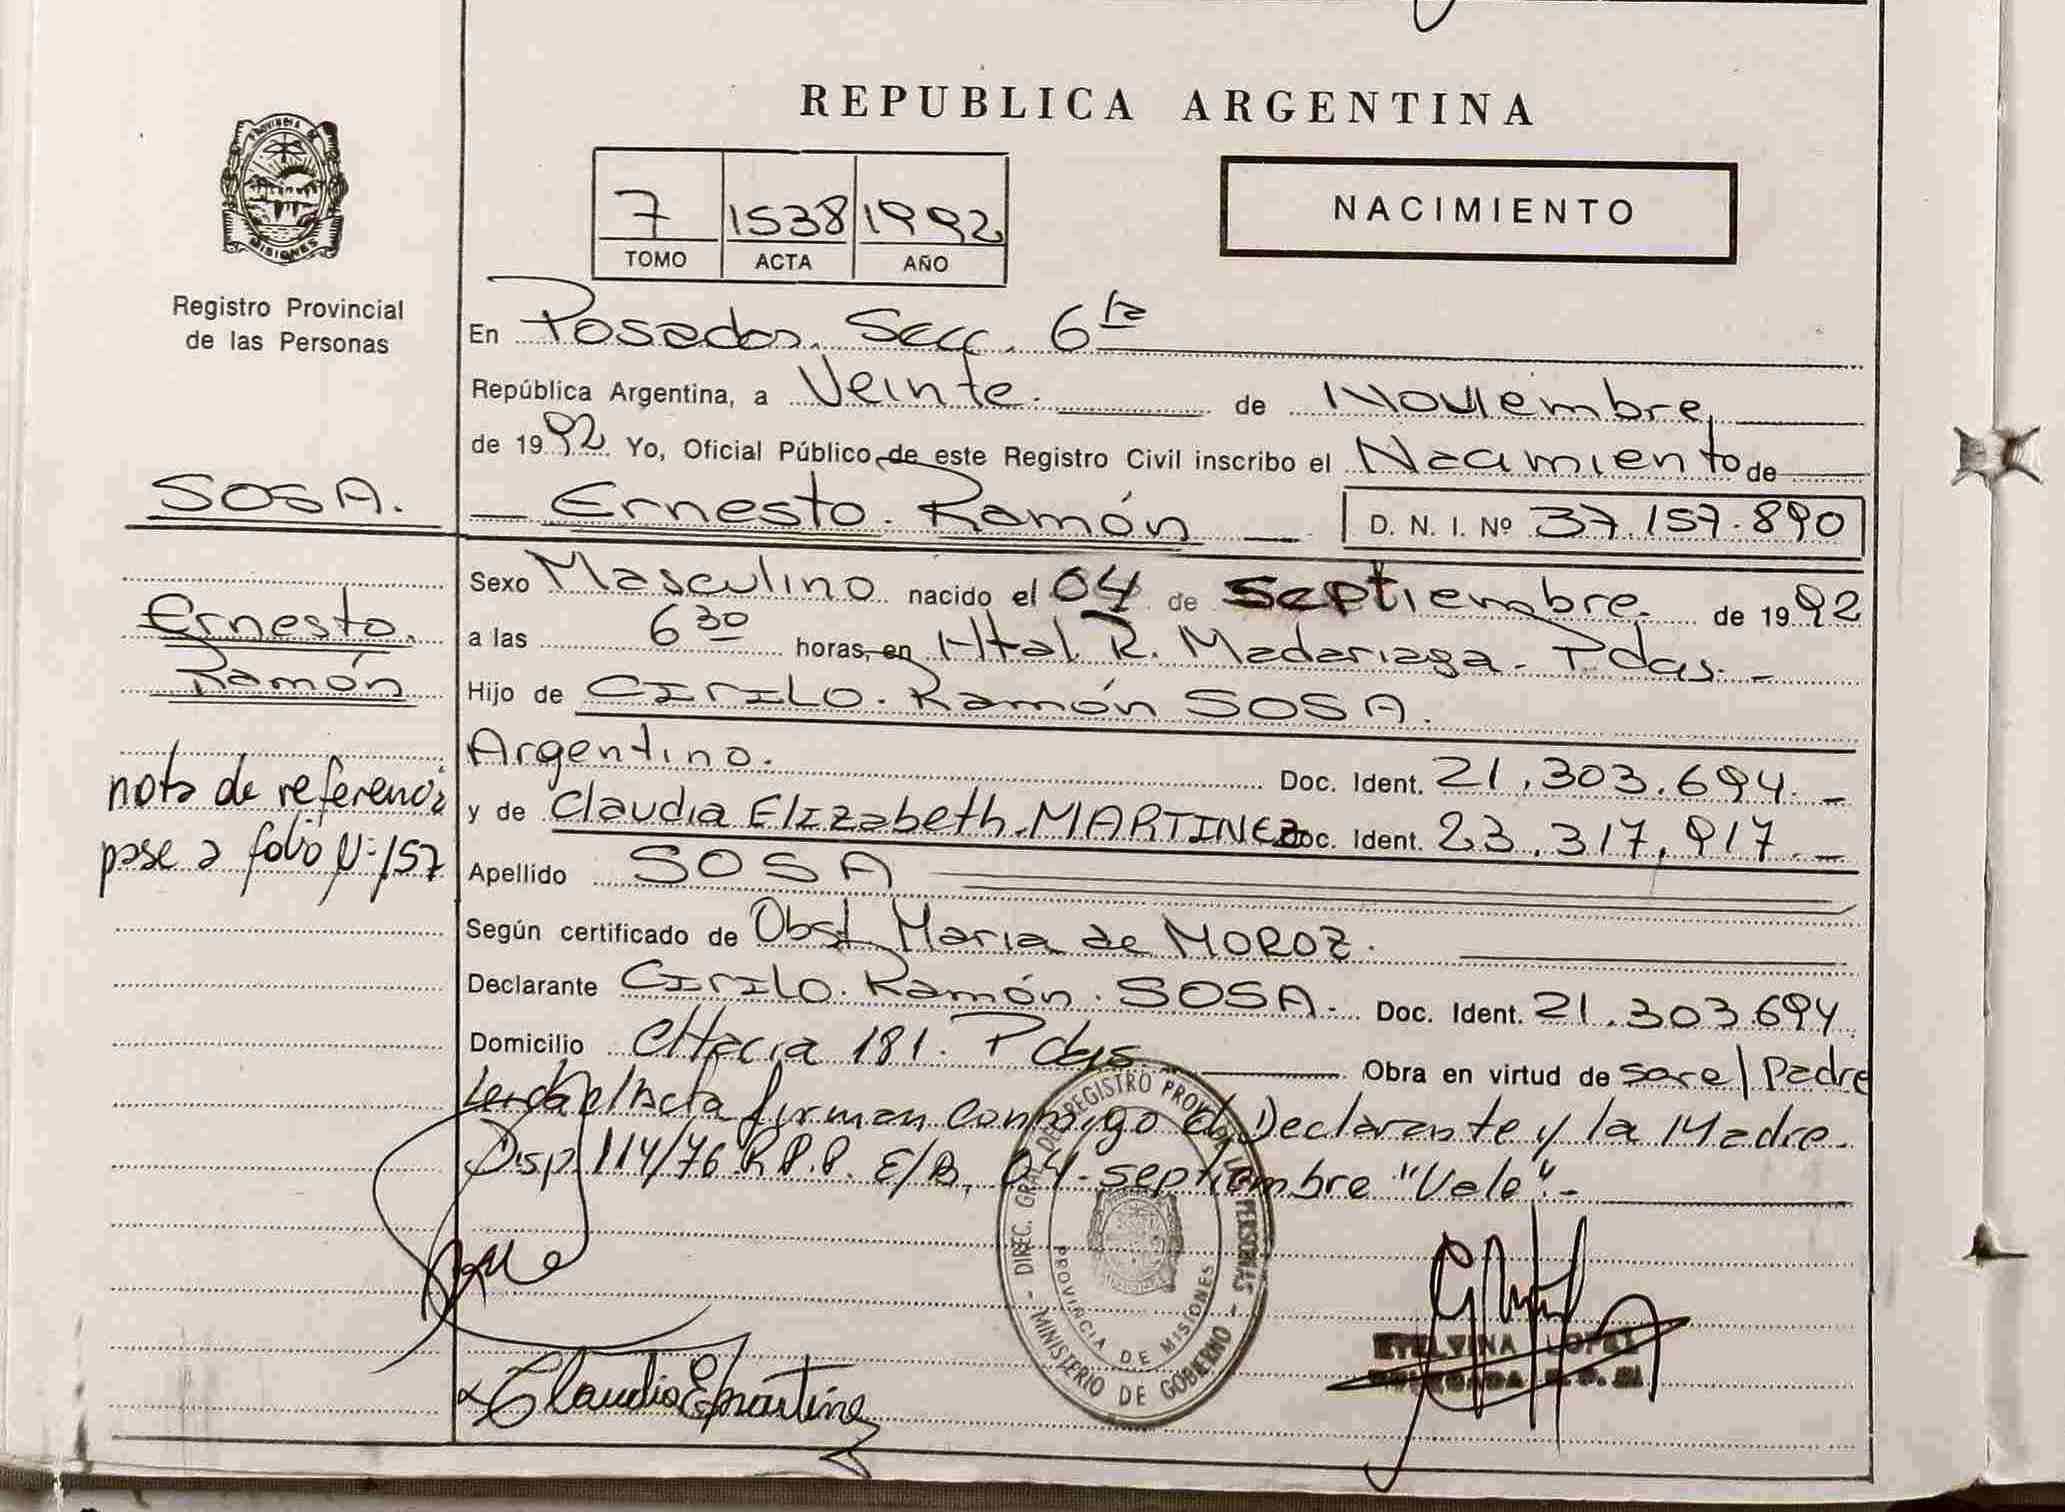 REPUBLICA ARGENTINA
PROVINCIA DE MISIONES
Registro Provincial
de las Personas
7 1538 1992
TOMO ACTA AÑO
NACIMIENTO
En Posadas. Secc. 6ta
República Argentina, a Veinte. de Noviembre
de 1992 Yo, Oficial Público de este Registro Civil inscribo el Nacimiento de
SOSA.
Ernesto. Ramón D. N. I. Nº 37.157.890
Ernesto.
Ramón
Sexo Masculino nacido el 04 de septiembre. de 1992
a las 6 30 horas, en Htal. R. Madariaga - Pdas. -
Hijo de Cirilo. Ramón SOSA.
Argentino. Doc. Ident. 21.303.694. -
y de Claudia Elizabeth. MARTINEZ Doc. Ident. 23.317.917. -
nota de referencia
pase a folio Nº 157
Apellido SOSA
Según certificado de Obst. Maria de MOROZ.
Declarante Cirilo. Ramón. SOSA. Doc. Ident. 21.303.694
Domicilio cHacra 181. Pdas Obra en virtud de ser el Padre
Leida el Acta firman conmigo el Declarante y la Madre.
Disp. 114/76 R.P.P. E/B. 04. septiembre "Vale". -
DIREC. GRAL. DEL REGISTRO PROV. DE LAS PERSONAS - MINISTERIO DE GOBERNO -
PROVINCIA DE MISIONES
Claudia E Martine
ETELVINA LOPEZ